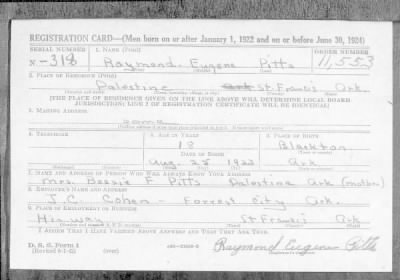 REGISTRATION CARD—(Men born on or after January 1, 1922 and on or before June 30, 1924)
SERIAL NUMBER 1. NAME (Print) ORDER NUMBER
N-318 Raymond Eugene Pitts 11,553
2. PLACE OF RESIDENCE (Print)
Palestine St. Francis Ark.
[THE PLACE OF RESIDENCE GIVEN ON THE LINE ABOVE WILL DETERMINE LOCAL BOARD
JURISDICTION; LINE 2 OF REGISTRATION CERTIFICATE WILL BE IDENTICAL]
3. MAILING ADDRESS
Same
4. TELEPHONE 5. AGE IN YEARS 6. PLACE OF BIRTH
18 Blackton
DATE OF BIRTH
Aug. 25 1923 Ark
7. NAME AND ADDRESS OF PERSON WHO WILL ALWAYS KNOW YOUR ADDRESS
Mrs. Bessie F. Pitts Palestine Ark (mother)
8. EMPLOYER'S NAME AND ADDRESS
J. C. Cohen - Forrest City Ark.
9. PLACE OF EMPLOYMENT OR BUSINESS
Hiway St Francis Ark.
I AFFIRM THAT I HAVE VERIFIED ABOVE ANSWERS AND THAT THEY ARE TRUE.
D. S. S. Form 1 Raymond Eugene Pitts
(Revised 6-1-42) (over)